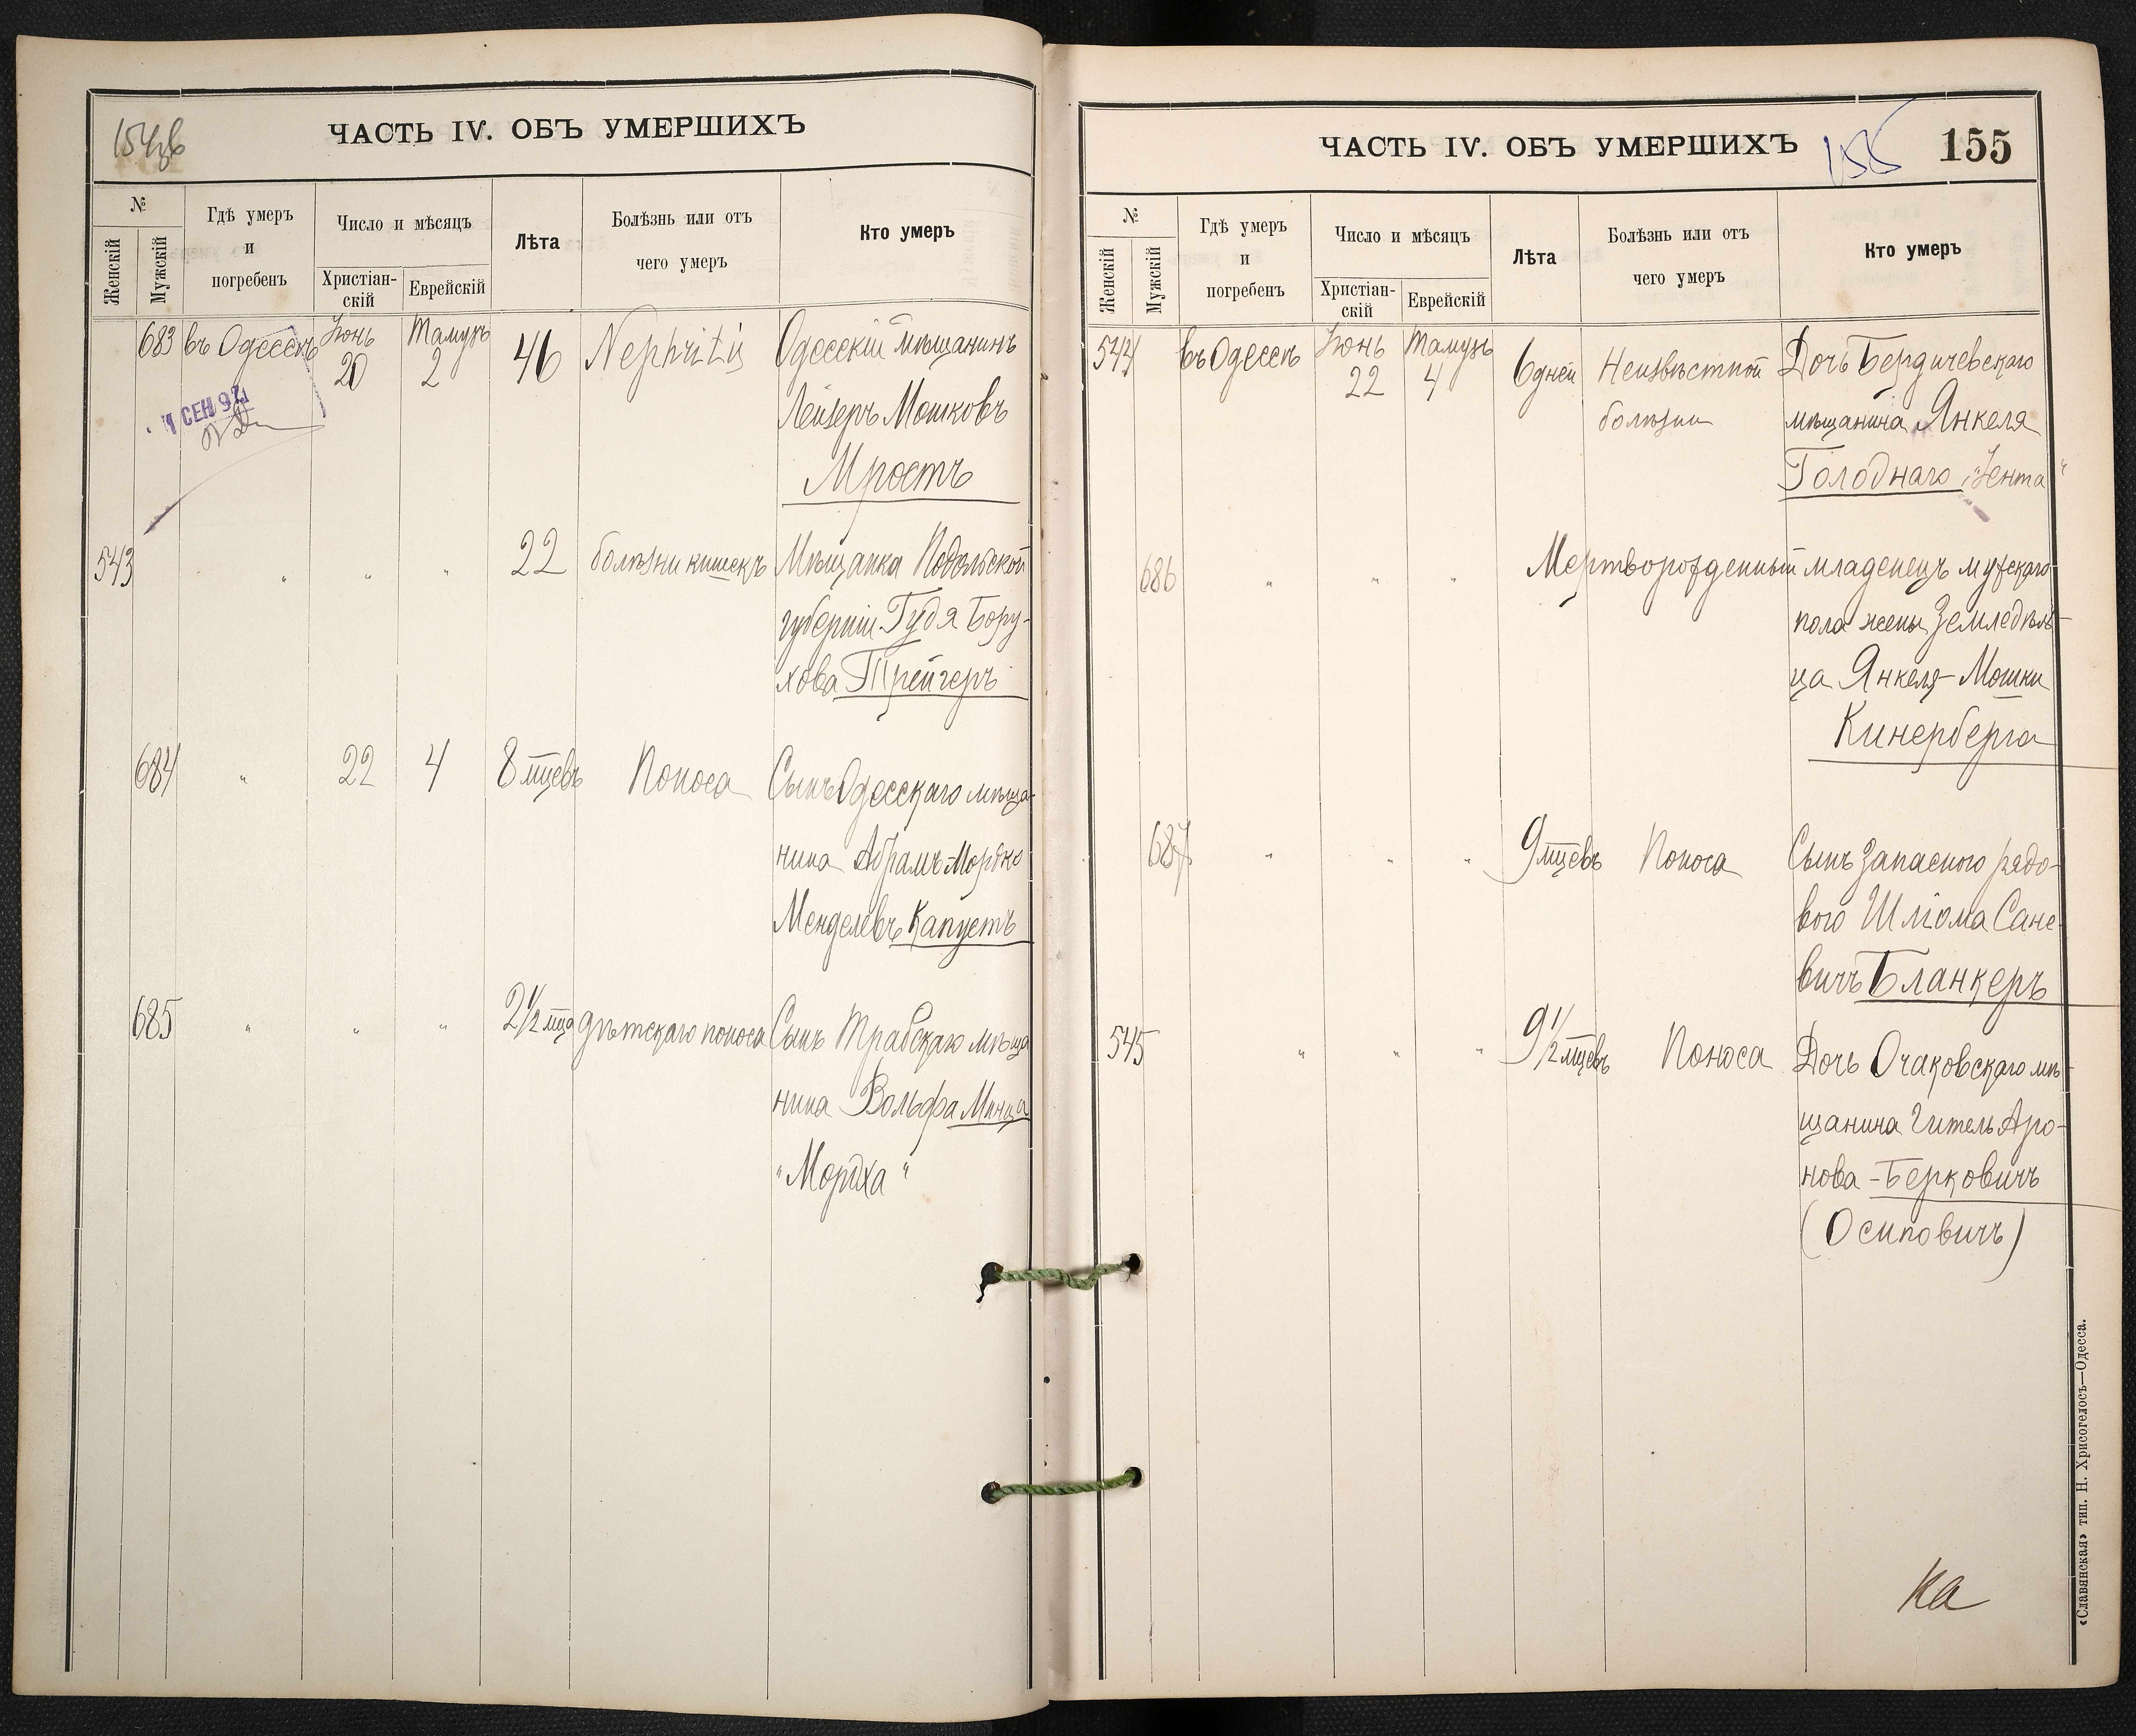 154об
ЧАСТЬ IV. ОБЪ УМЕРШИХЪ
№
Женскій
Мужскій
Гдѣ умеръ
и
погребенъ
Число и мѣсяцъ
Христіан-
скій
Еврейскій
Лѣта
Болѣзнь или отъ
чего умеръ
Кто умеръ
683 въ Одессѣ Іюнь 20 Тамузъ 2 46 Nephritis Одесскій мѣщанинъ
Лейзеръ Мошковъ
Мростъ
СЕН 92
543 " " " 22 болѣзни кишекъ Мѣщанка Подольской
губерніи Гудя Бору-
хова Трейгеръ
684 " 22 4 8 мцевъ Поноса Сынъ Одесскаго мѣща-
нина Абрамъ-Мордко
Менделевъ Капустъ
685 " " " 2 1/2 мца дѣтскаго поноса Сынъ Трабскаго мѣща
нина Вольфа Минца
"Мордха"
ЧАСТЬ IV. ОБЪ УМЕРШИХЪ
155
155
№
Женскій
Мужскій
Гдѣ умеръ
и
погребенъ
Число и мѣсяцъ
Христіан-
скій
Еврейскій
Лѣта
Болѣзнь или отъ
чего умеръ
Кто умеръ
544 въ Одессѣ Іюнь 22 Тамузъ 4 6 дней Неизвѣстной Дочь Бердичевскаго
болѣзни мѣщанина Янкеля
Голоднаго "Ента"
686 " " " Мертворожденный младенецъ мужскаго
пола жены Земледѣль-
ца Янкеля-Мошки
Кинерберга
687 " " " 9 мцевъ Поноса Сынъ Запасного рядо-
вого Шліома Сане-
вичъ Бланкеръ
545 " " " 9 1/2 мцевъ Поноса Дочь Очаковскаго мѣ-
щанина Гитель Аро-
нова-Берковичъ
(Осиповичъ)
ка
«Славянская» тип. Н. Хрисогелосъ—Одесса.